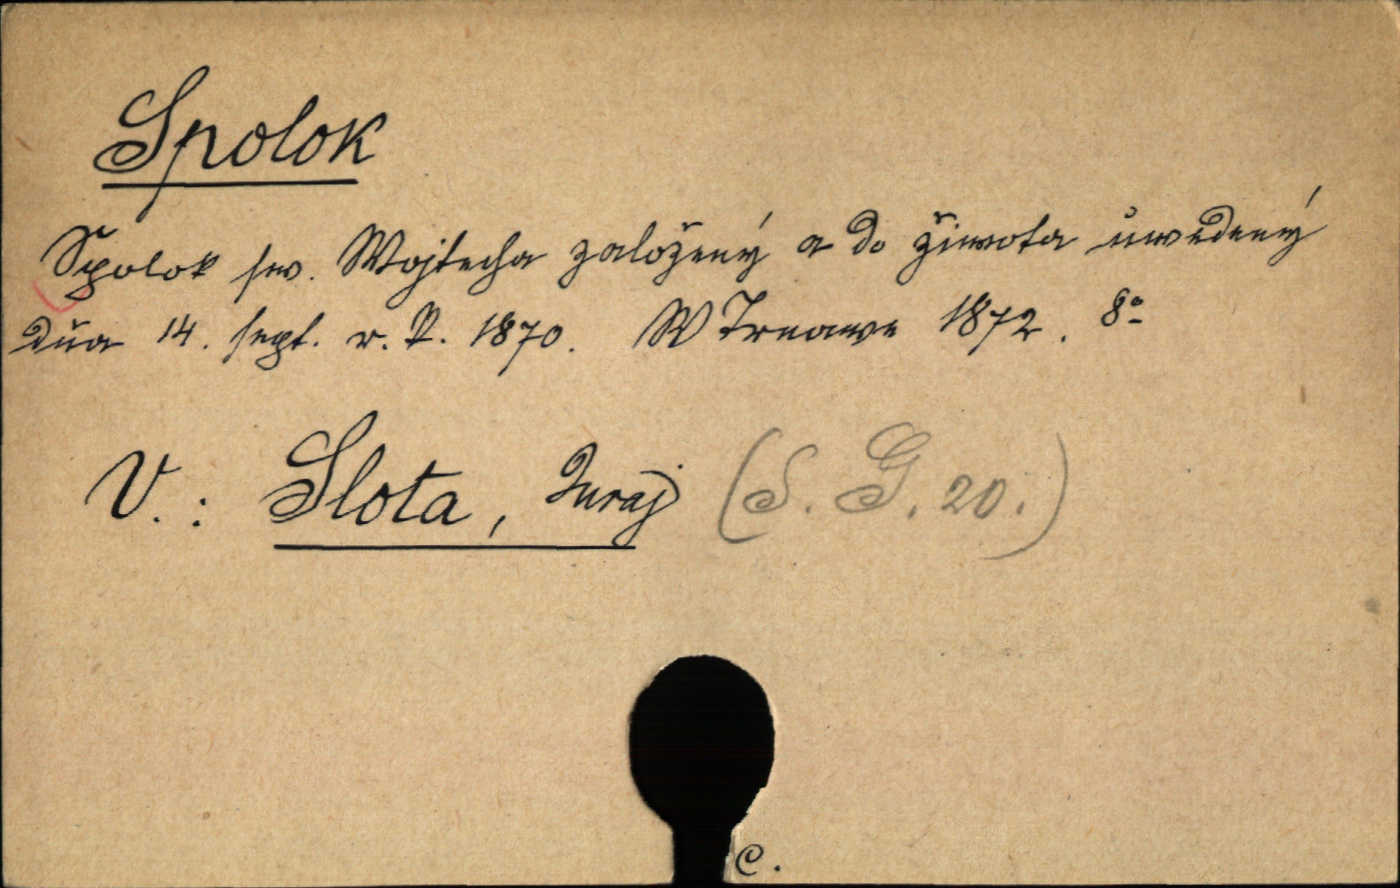 Spolok
Spolok sw. Wojtecha založený a do žiwota uwedený
dňa 14. sept. r. P. 1870. W Trnawe 1872. 8°
V.: Slota, Juraj (S. G. 20.)
C.